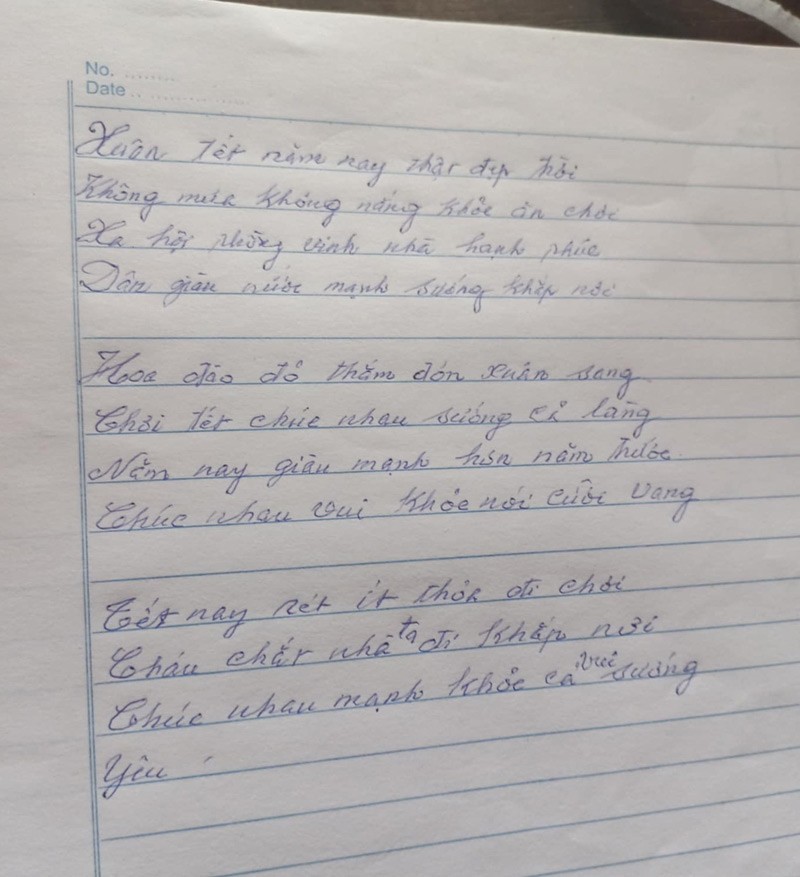 No. ........
Date .. ...............
Xuân Tết năm nay thật đẹp trời
Không mưa không nắng khỏe ăn chơi
Xã hội phồng vinh nhà hạnh phúc
Dân giàu nước mạnh sướng khắp nơi
Hoa đào đỏ thắm đón xuân sang
Chơi tết chúc nhau sướng cả làng
Năm nay giàu mạnh hơn năm trước
Chúc nhau vui khỏe nói cười vang
Tết nay rét ít thỏa đi chơi
Cháu chắt nhà ta đi khắp nơi
Chúc nhau mạnh khỏe cả vui sướng
Yêu